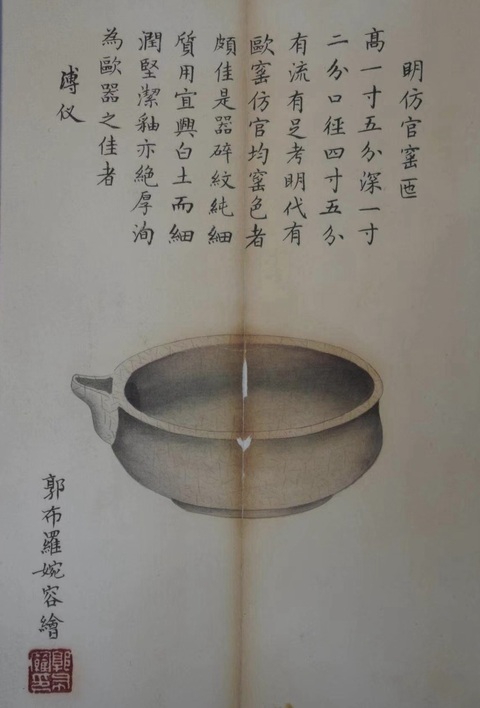 明仿官窯匜
高一寸五分深一寸
二分口徑四寸五分
有流有足考明代有
歐窯仿官均窯色者
頗佳是器碎紋純細
質用宜興白土而細
潤堅潔釉亦絶厚洵
為歐器之佳者
溥仪
郭布羅婉容繪